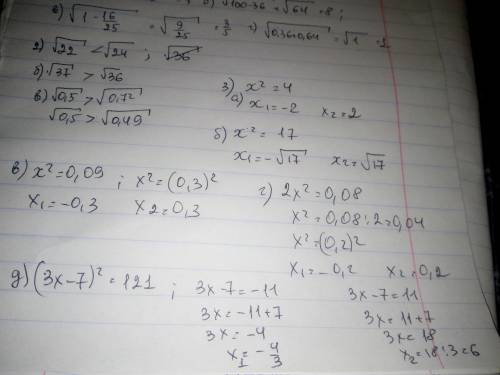 √100-36 = √64 = 8 ;
в) √1-16/25 = √9/25 = 3/5 г) √0,36+0,64 = √1 = 1
2) √22 < √24 ; √36
б) √37 > √36
в) √0,5 > √0,72
√0,5 > √0,49
3) x² = 4
а) x₁ = -2 x₂ = 2
б) x² = 17
x₁ = -√17 x₂ = √17
в) x² = 0,09 ; x² = (0,3)²
x₁ = -0,3 x₂ = 0,3
г) 2x² = 0,08
x² = 0,08:2 = 0,04
x² = (0,2)²
x₁ = -0,2 x₂ = 0,2
д) (3x-7)² = 121 ; 3x-7 = -11 3x-7 = 11
3x = -11+7 3x = 11+7
3x = -4 3x = 18
x₁ = -4/3 x₂ = 18:3 = 6